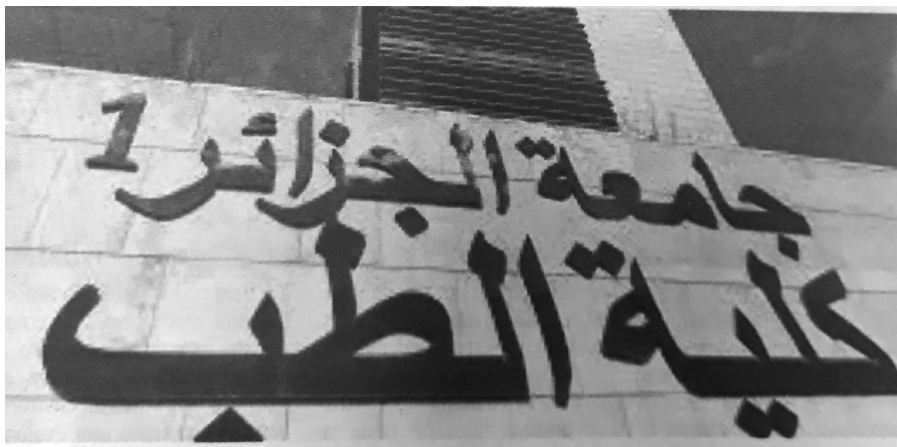 جامعة الجزائر 1
كلية الطب